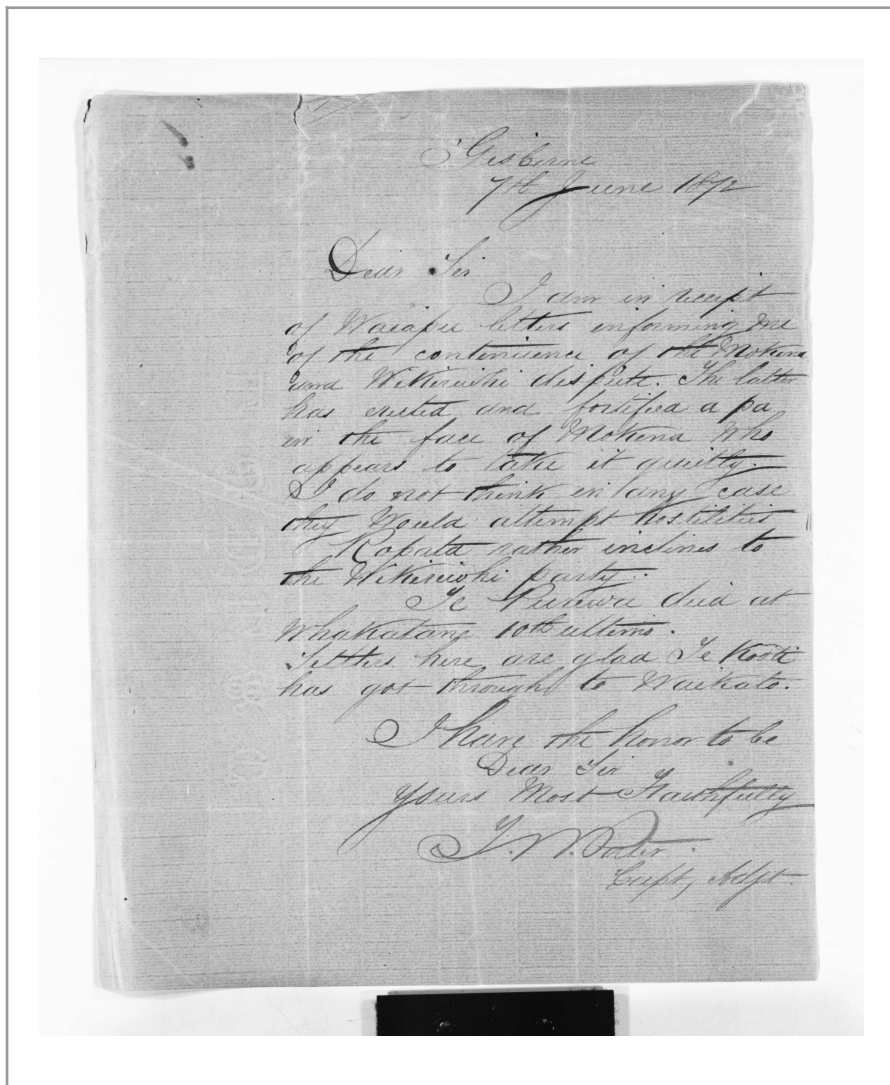 Gisborne
7th June 1872
Dear Sir
I am in receipt
of Waiapu letters informing me
of the continuence of the Mokena
and Wikiriwhi dispute. The latter
has erected and fortified a pa
in the face of Mokena who
appears to take it quietly.
I do not think in any case
they would attempt hostilities
Ropata rather inclines to
the Wikiriwhi party.
Te Purewa died at
Whakatane 10th ultimo.
Settlers here are glad Te Kooti
has got through to Waikato.
I have the honor to be
Dear Sir
Yours Most Faithfully
T. W. Porter.
Capt, Adjt.